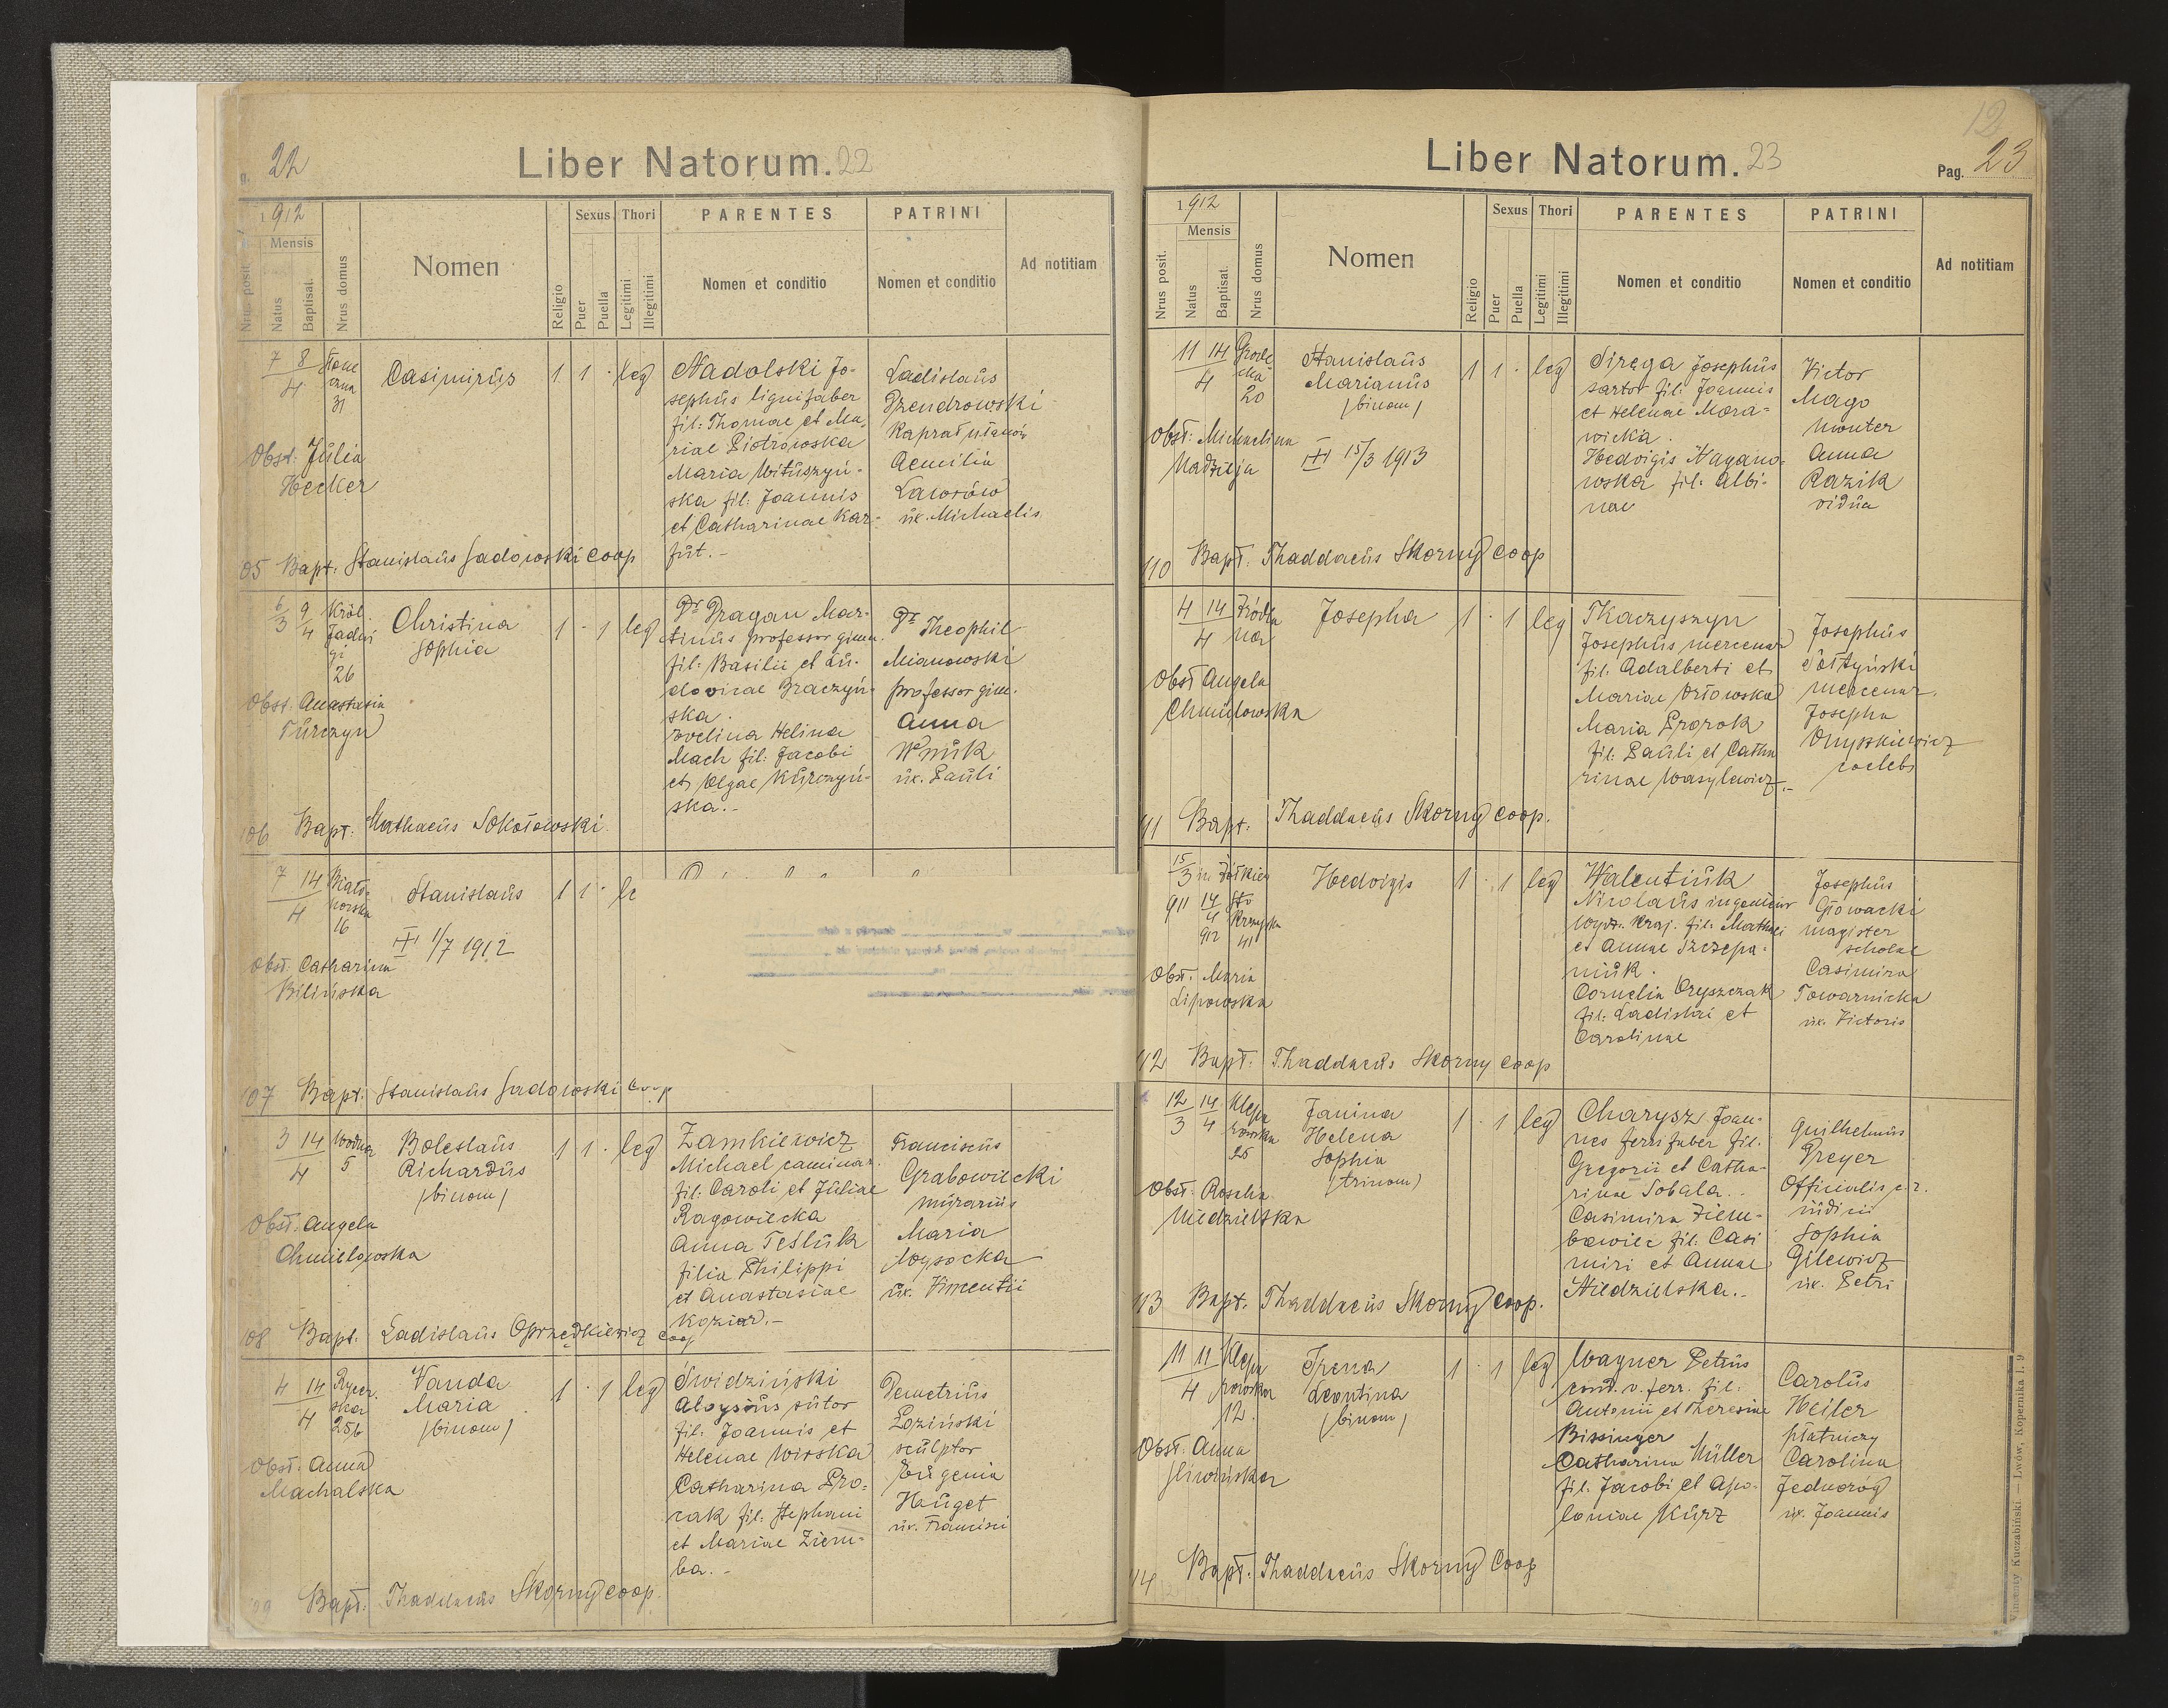 22
Liber Natorum. 22
1912
Nrus posit.
Mensis
Natus
Baptisat.
Nrus domus
Nomen
Religio
Sexus
Puer
Puella
Thori
Legitimi
Illegitimi
PARENTES
Nomen et conditio
PATRINI
Nomen et conditio
Ad notitiam
7 8
4
31
Casimirus
1 1 · leg
Nadolski Jo-
sephus lignifaber
fil: Thomae et Ma-
riae Piotrowska
Maria Wituszyń-
ska fil: Joannis
et Catharinae Kar-
fut.-
Ladislaus
Przendrowski
Kaprał ułanów
Aemilia
Lawrów
ux. Michaelis
Obst: Julia
Hecker
05 Bapt: Stanislaus Sadowski coop
6/3 9/4
Król.
Jadwi
gi
26
Christina
Sophia
1 · 1 leg
Dr Dragan Mar-
tinus professor gimn.
fil: Basilii et Lu-
dovicae Braczyń-
ska.
Evelina Helina
Mach fil: Jacobi
et Olgae Kurczyń-
ska.-
Dr Theophil
Mianowski
professor gim.
Anna
Wnuk
ux. Pauli
Obst: Anastasia
Turczyn
106 Bapt: Mathaeus Sokołowski.
7 14
4
16
Stanislaus
1 1 · le
1/7 1912
Obst: Catharina
Bilińska
107 Bapt: Stanislaus Sadowski Coop
3 14
4
Wodna
5
Boleslaus
Richardus
(binom)
1 1 · leg
Zamkiewicz
Michael caminar.
fil: Caroli et Juliae
Ragowiecka
Anna Tesluk
filia Philippi
et Anastasiae
Koziar.-
Franciscus
Grabowiecki
murarius
Maria
Wysocka
ux. Vincentii
Obst: Angela
Chmielowska
108 Bapt. Ladislaus Oprzędkiewicz coop
4 14
4
Rycer
ska
25b
Vanda
Maria
(binom)
1 · 1 leg
Świdziński
Aloysius sutor
fil: Joannis et
Helenae Wirska
Catharina Pro-
cak fil: Stephani
et Mariae Ziem-
ba.-
Demetrius
Łoziński
sculptor
Eugenia
Huget
ux. Francisci
Obst: Anna
Machalska
109 Bapt: Thaddaeus Skorny coop.
12
Liber Natorum. 23
Pag. 23
1912
Nrus posit.
Mensis
Natus
Baptisat.
Nrus domus
Nomen
Religio
Sexus
Puer
Puella
Thori
Legitimi
Illegitimi
PARENTES
Nomen et conditio
PATRINI
Nomen et conditio
Ad notitiam
11 14
4
Grode
cka
20
Stanislaus
Marianus
(binom)
1 1 · leg
Sirega Josephus
sartor fil: Joannis
et Helenae Mora-
wicka.
Hedvigis Nagano-
wska fil: Albi-
nae
Victor
Mago
monter
Anna
Razik
vidua
Obst: Michaelina
Madzieja
15/3 1913
110 Bapt. Thaddaeus Skorny coop
4 14
4
Źródla
na
Josepha
1 · 1 leg
Tkaczyszyn
Josephus mercenar
fil: Adalberti et
Mariae Orłowska
Maria Prorok
fil: Pauli et Catha
rinae Wasylewicz.-
Josephus
Sołtyński
mercenar.
Josepha
Onyszkiewicz
coelebs
Obst Angela
Chmielowska
111 Bapt: Thaddaeus Skorny coop.
15/3
911
14/4
912
Sto
Krzyska
41
Hedvigis
1 · 1 leg
Walentiuk
Nicolaus ingenieur
Wydz. Kraj. fil: Mathaei
et Annae Szczepa-
niuk.
Cornelia Oryszczak
fil: Ladislai et
Carolinae
Josephus
Głowacki
magister
scholae
Casimira
Towarnicka
ux. Victoris
Obst. Maria
Lipowska
112 Bapt: Thaddaeus Skorny coop
12/3 14/4
Klepa
rowska
25
Janina
Helena
Sophia
(trinom)
1 · 1 leg
Charysz Joan-
nes ferrifaber fil:
Gregorii et Catha-
rinae Sobala..
Casimira Ziem-
bowicz fil: Casi
miri et Annae
Niedzielska..
Guilhelmus
Preyer
Officialis c. r.
Sophia
Gilewicz
ux. Petri
Obst: Rosalia
Niedzielska
113 Bapt. Thaddaeus Skorny coop.
11 11
4
Klepa
rowska
12.
Irena
Leontina
(binom)
1 · 1 leg
Wagner Petrus
cond. v. ferr. fil:
Antonii et Theresiae
Bissinger
Catharina Müller
fil: Jacobi et Apo-
loniae Kurz
Carolus
Heiler
płatniczy
Carolina
Jednoróg
ux. Joannis
Obst: Anna
Śliwińska
114 Bapt. Thaddaeus Skorny Coop
Wincenty Kuczabiński. — Lwów, Kopernika 1. 9